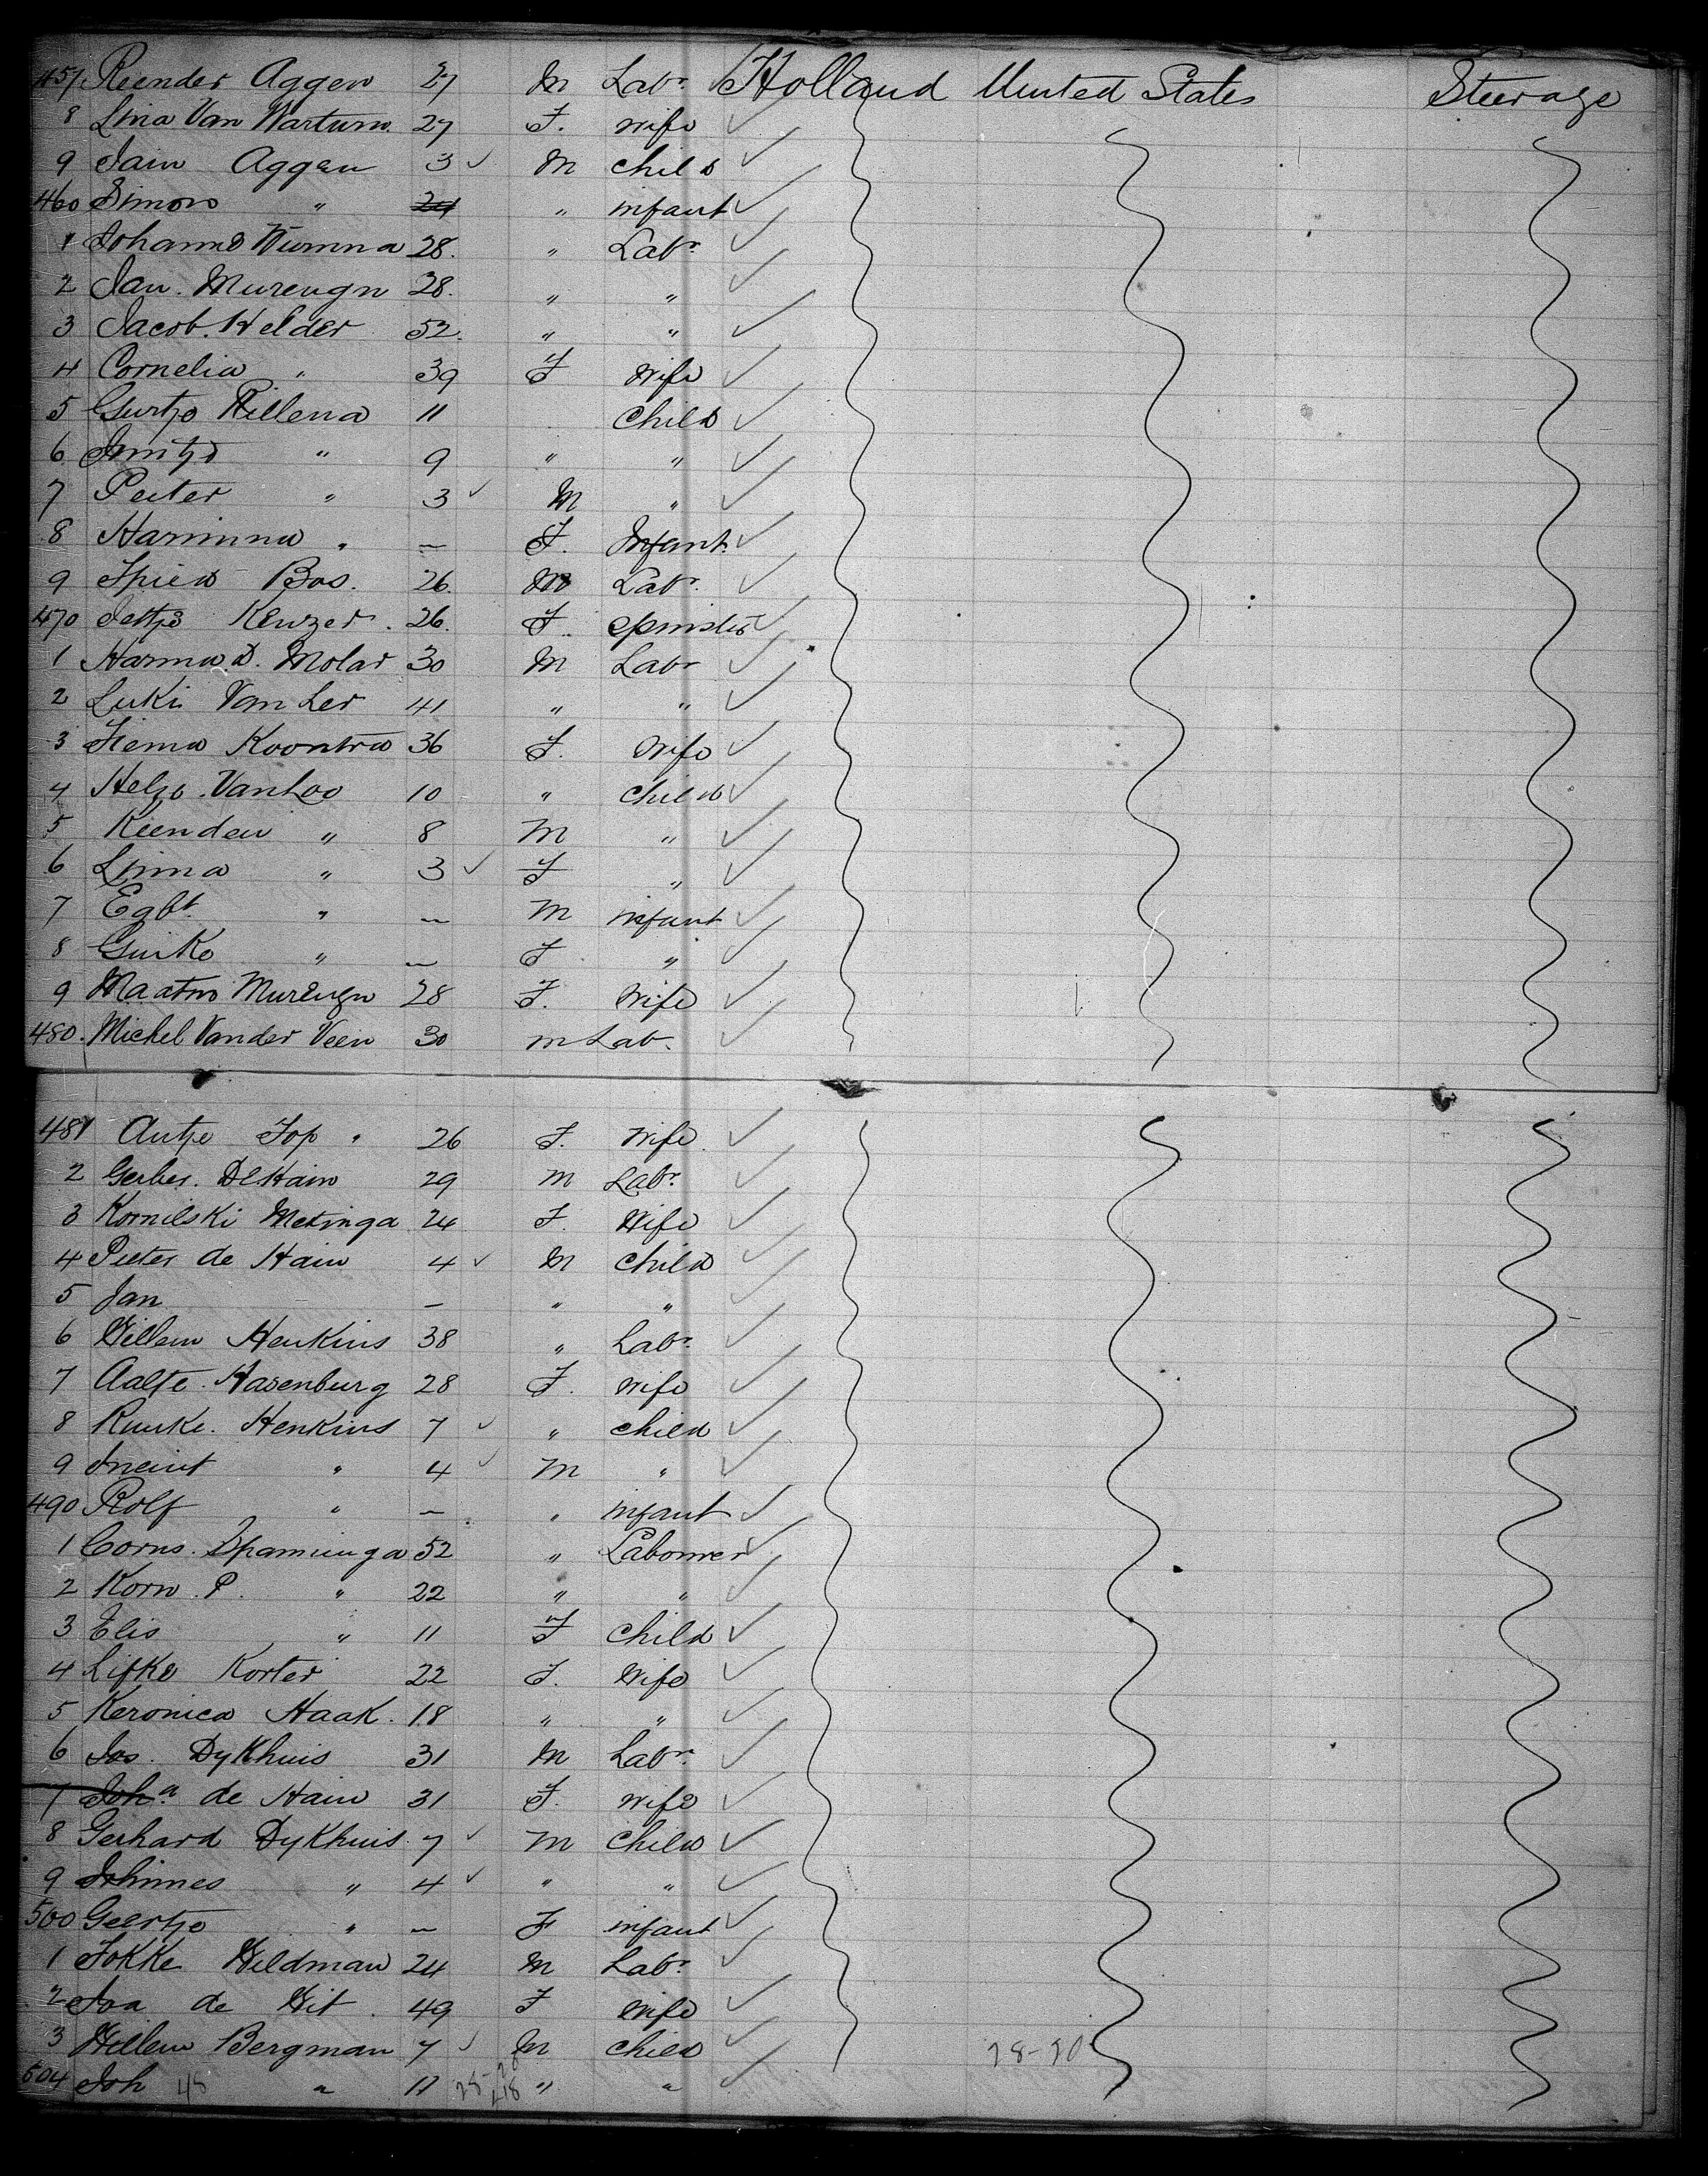 457 Reender Aggen 27 M Labr Holland United States Steerage
8 Lina Van Wartum 27 F. wife
9 Jain Aggen 3 M child
460 Simon " 24 " infant
1 Johanns Wumna 28. " Labr
2 Jan. Murengn 28. " "
3 Jacob. Helder 52. " "
4 Cornelia " 39 F Wife
5 Gurtje Rillena 11 Child
6 " 9 " "
7 Peiter " 3 M "
8 Harminna " — F. Infant.
9 Bos. 26. M Labr.
470 Jettje Keuzer. 26. F. spinster
1 Harmn. D. Molar 30 M Labr
2 Luki Van Ler 41 " "
3 Tiema Koontra 36 F. Wife
4 Helzo Van Loo 10 " child
5 Rienden " 8 M "
6 Linna " 3 F "
7 Egbt " — M infant
8 Guiko " — F "
9 Maatno Murengn 28 F. Wife
480. Michel Vander Veen 30 m Lab.
481 Antje Top " 26 F. Wife
2 Gerber. De Hain 29 M Labr
3 Kornilski Metinga 24 F. Wife
4 Pieter de Hain 4 M Child
5 Jan — " "
6 Willem Henkins 38 " Labr.
7 Aalte. Hasenburg 28 F. wife
8 Ruuke. Henkins 7 " child
9 " 4 M "
490 Rolf " — " infant
1 Corns. Spaminga 52 " Labourer
2 Korn. P. " 22 " "
3 Elis " 11 F Child
4 Lifke Korter 22 F. Wife
5 Keronica Haak. 18 " "
6 Jas. Dykhuis 31 M Labr.
7 Joha de Hain 31 F. Wife
8 Gerhard Dykhuis. 7 M Child
9 Johinnes " 4 " "
500 Geertje " — F infant
1 Fokke Wildman 24 M Labr
2 de Wit. 49 F Wife
3 Willem Bergman 7 M Child 28-20
504 Joh 48 " 11 28- 48 " "